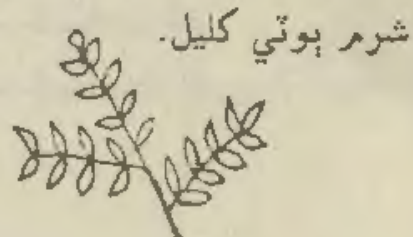 شرم ٻوٽي کليل.